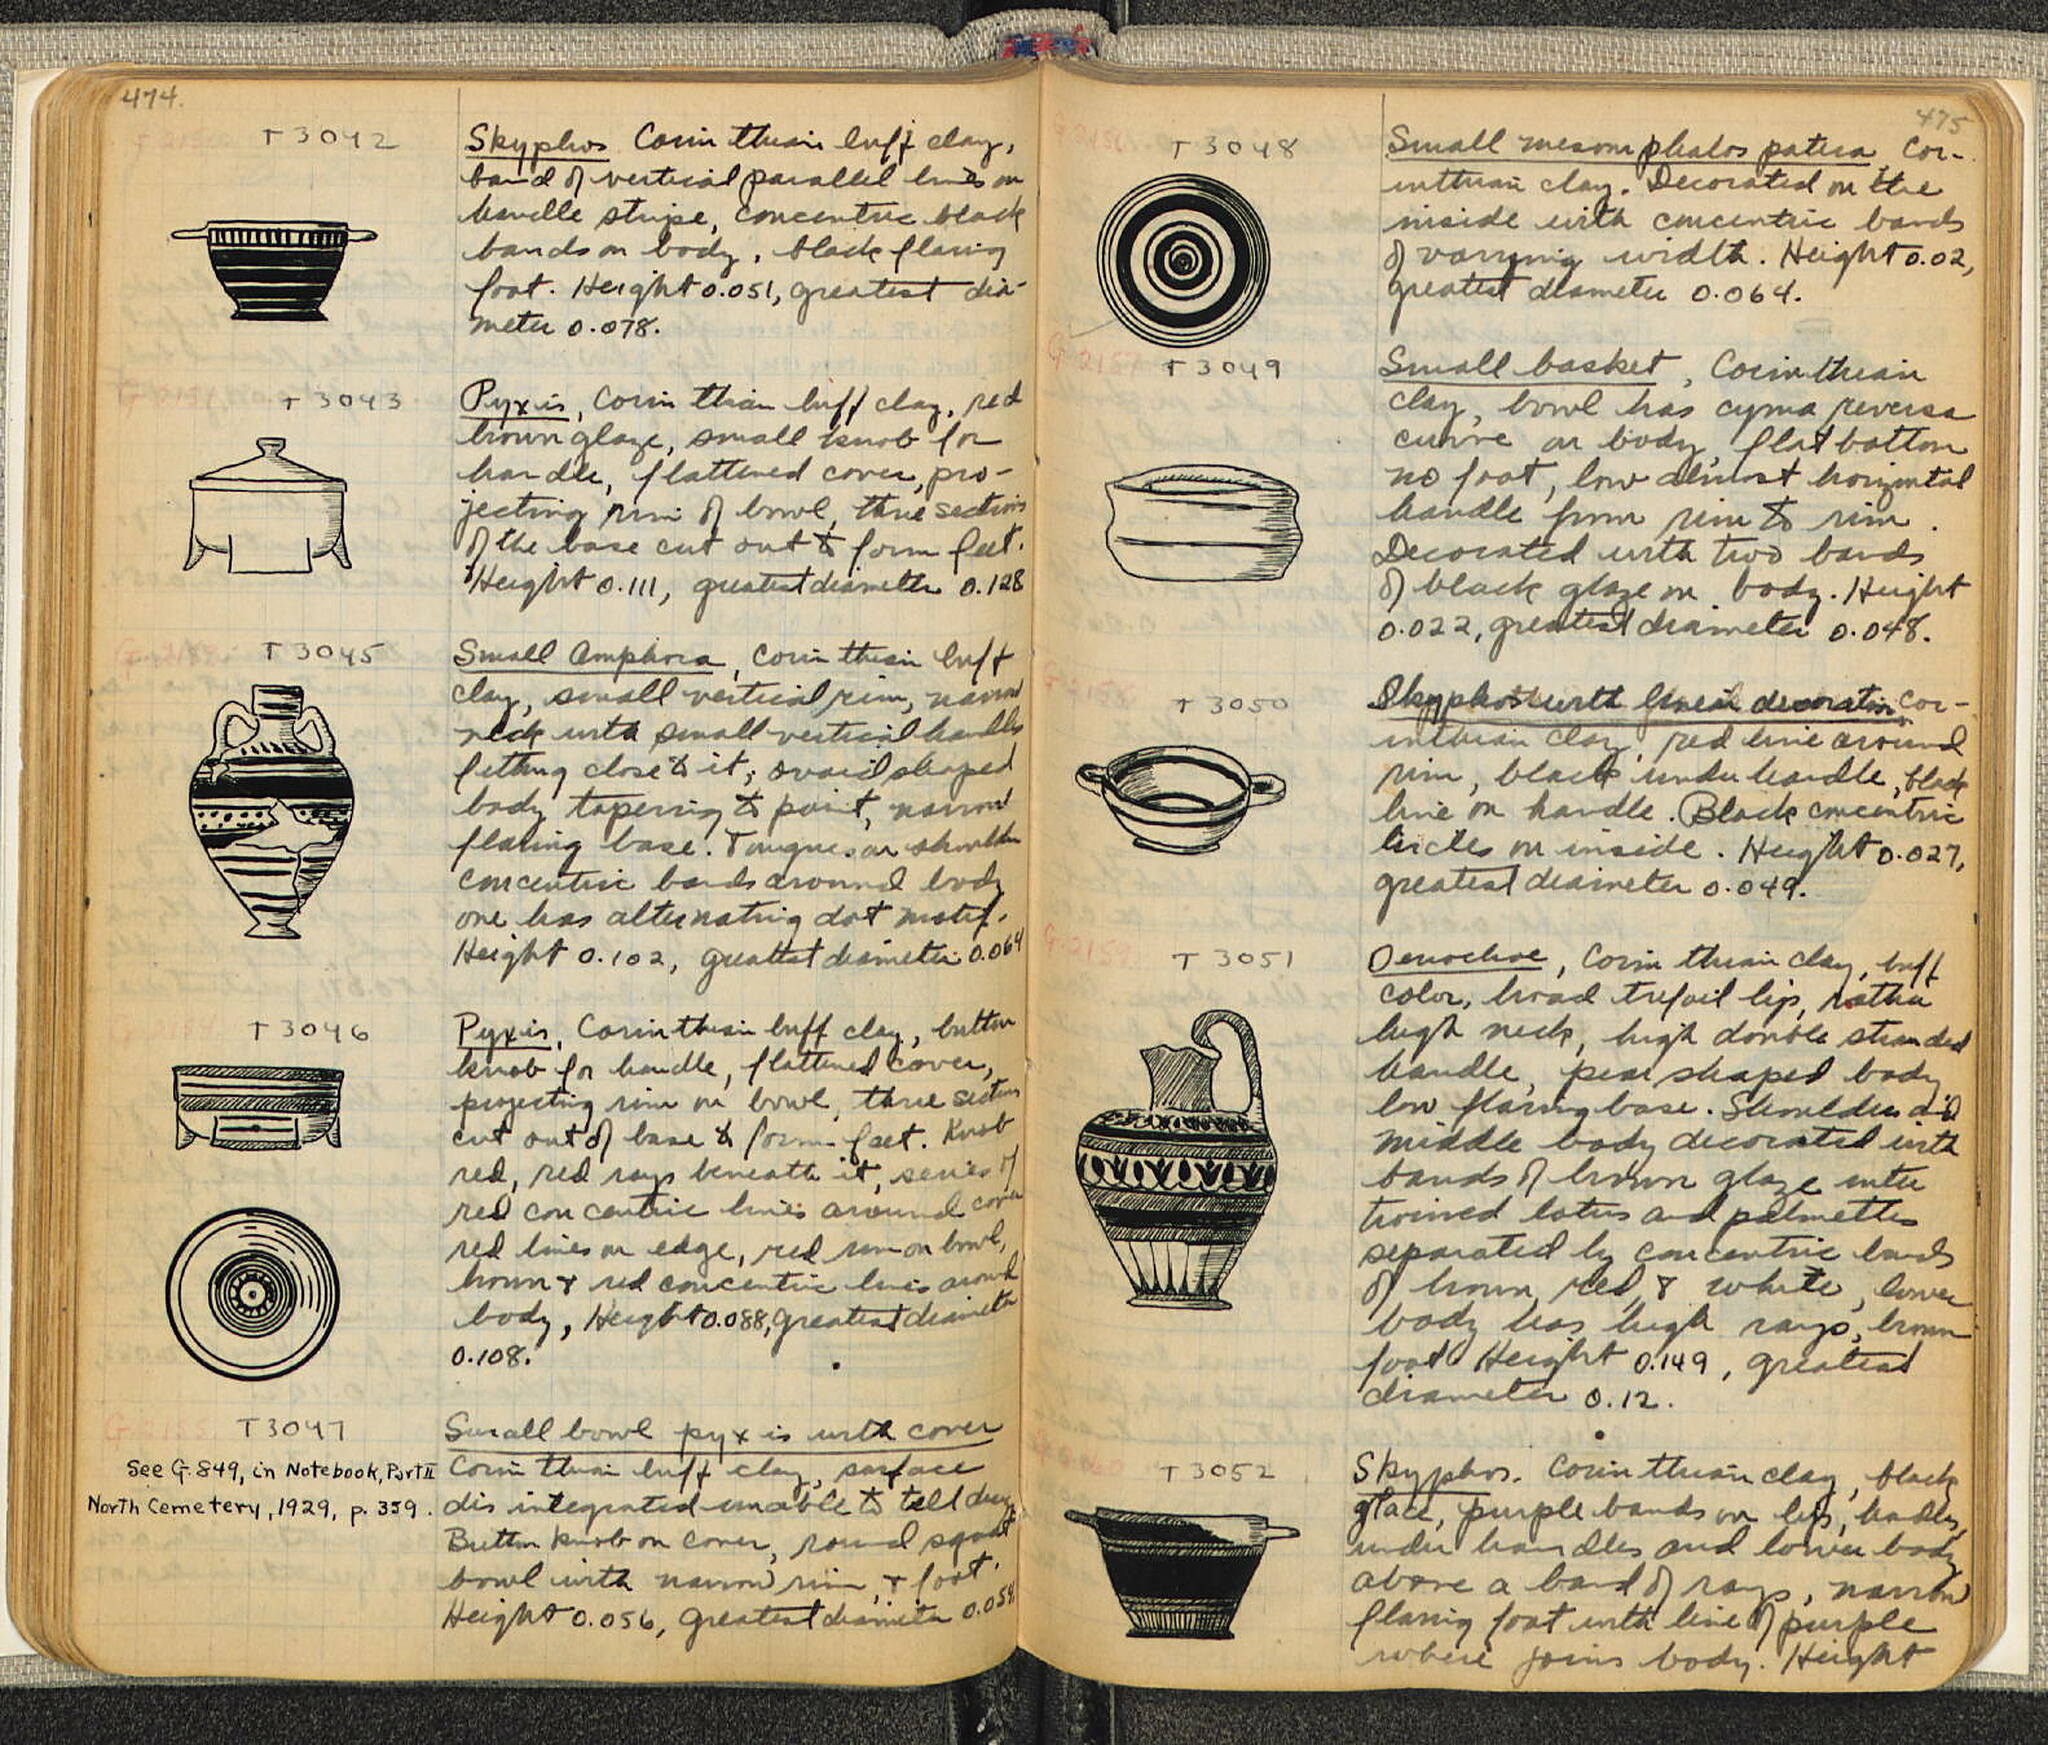 474.
T 3042
Skyphos Corinthian buff clay,
band of vertical parallel lines on
handle stripe, concentric black
bands on body, black flaring
foot. Height 0.051, greatest dia-
meter 0.078.
T 3043
Pyxis, Corinthian buff clay, red
brown glaze, small knob for
handle, flattened cover, pro-
jecting rim of bowl, three sections
of the base cut out to form feet.
Height 0.111, greatest diameter 0.128
T 3045
Small Amphora, Corinthian buff
clay, small vertical rim, narrow
neck with small vertical handles
fitting close to it; ovoid shaped
body tapering to point, narrow
flaring base. Tongues on shoulder
concentric bands around body
one has alternating dot motif.
Height 0.102, greatest diameter 0.064
T 3046
Pyxis, Corinthian buff clay, button
knob for handle, flattened cover,
projecting rim on bowl, three sections
cut out of base to form feet. Knob
red, red rays beneath it, series of
red concentric lines around cover
red lines on edge, red rim on bowl,
brown & red concentric lines around
body, Height 0.088, greatest diameter
0.108.
T 3047
See G. 849, in Notebook, Part II
North Cemetery, 1929, p. 359.
Small bowl pyxis with cover
Corinthian buff clay, surface
disintegrated unable to tell
Button knob on cover, round squat
bowl with narrow rim, & foot.
Height 0.056, greatest diameter
475
T 3048
Small mesomphalos patera, Cor-
inthian clay. Decorated on the
inside with concentric bands
of varying width. Height 0.02,
greatest diameter 0.064.
G-2157
T 3049
Small basket, Corinthian
clay, bowl has cyma reversa
curve on body, flat bottom
no foot, low almost horizontal
handle from rim to rim.
Decorated with two bands
of black glaze on body. Height
0.022, greatest diameter 0.048.
T 3050
Skyphos with linear decoration, Cor-
inthian clay, red line around
rim, black under handle, black
line on handle. Black concentric
circles on inside. Height 0.027,
greatest diameter 0.049.
G-2159
T 3051
Oenochoe, Corinthian clay, buff
color, broad trefoil lip, rather
high neck, high double stranded
handle, pear shaped body
low flaring base. Shoulder and
middle body decorated with
bands of brown glaze inter
twined lotus and palmettes
separated by concentric bands
of brown, red, & white, lower
body has high rays, brown
foot. Height 0.149, greatest
diameter 0.12.
T 3052
Skyphos. Corinthian clay, black
glaze, purple bands on lip, handles,
under handles and lower body
above a band of rays, narrow
flaring foot with line of purple
where joins body. Height